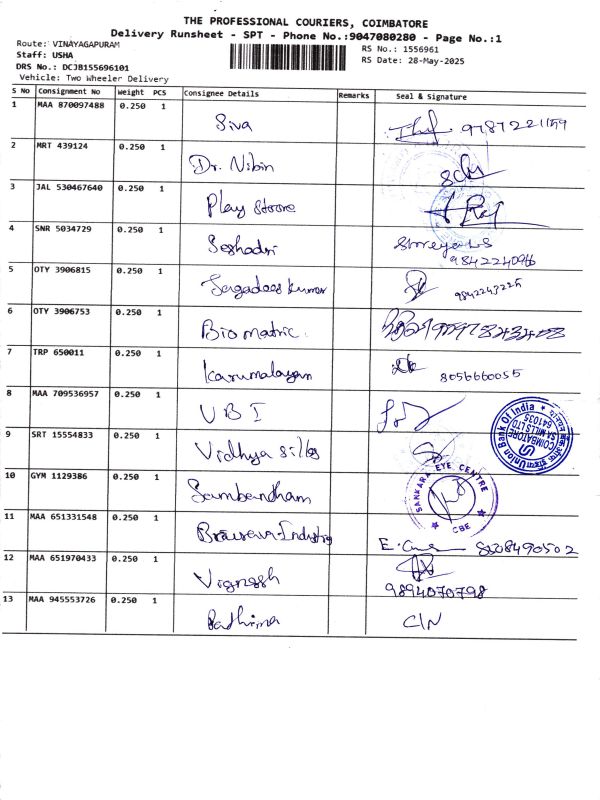 THE PROFESSIONAL COURIERS, COIMBATORE
Delivery Runsheet - SPT - Phone No.:9047080280 - Page No.:1
Route: VINAYAGAPURAM
Staff: USHA
DRS No.: DCJB155696101
Vehicle: Two Wheeler Delivery
RS No.: 1556961
RS Date: 28-May-2025
S No Consignment No Weight PCS Consignee Details Remarks Seal & Signature
1 MAA 870097488 0.250 1 Siva
2 MRT 439124 0.250 1 Dr. Nibin
3 JAL 530467640 0.250 1 Play Stoore
4 SNR 5034729 0.250 1 Seshadri
9842224096
5 OTY 3906815 0.250 1 Jagadees kumar 9842243225
6 OTY 3906753 0.250 1 Bio matric
7 TRP 650011 0.250 1 Karumalayam 8056660055
8 MAA 709536957 0.250 1 UBI
Union Bank Of India
COIMBATORE
SA MILLS LTD
641035
9 SRT 15554833 0.250 1 Vidhya silks
10 GYM 1129386 0.250 1 Sambandham
SANKARA EYE CENTRE
CBE
11 MAA 651331548 0.250 1
12 MAA 651970433 0.250 1 Vignesh
9894070798
13 MAA 945553726 0.250 1 C/N